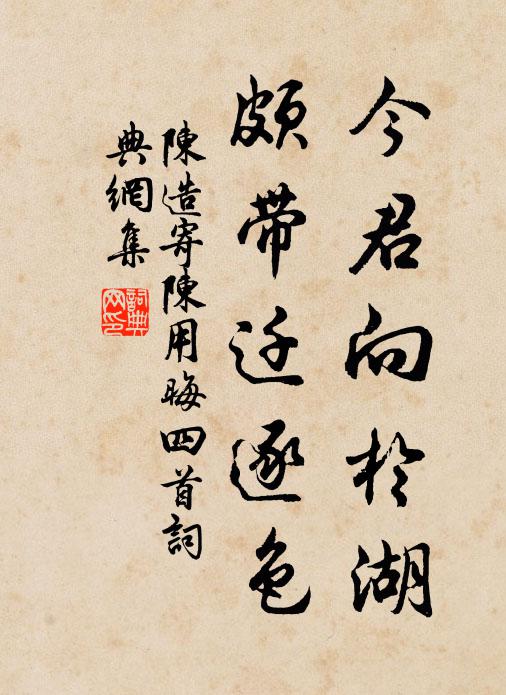 今君向於湖
頗帶迁逐色
陳造寄陳用晦四首詞
典網集
詞典網印